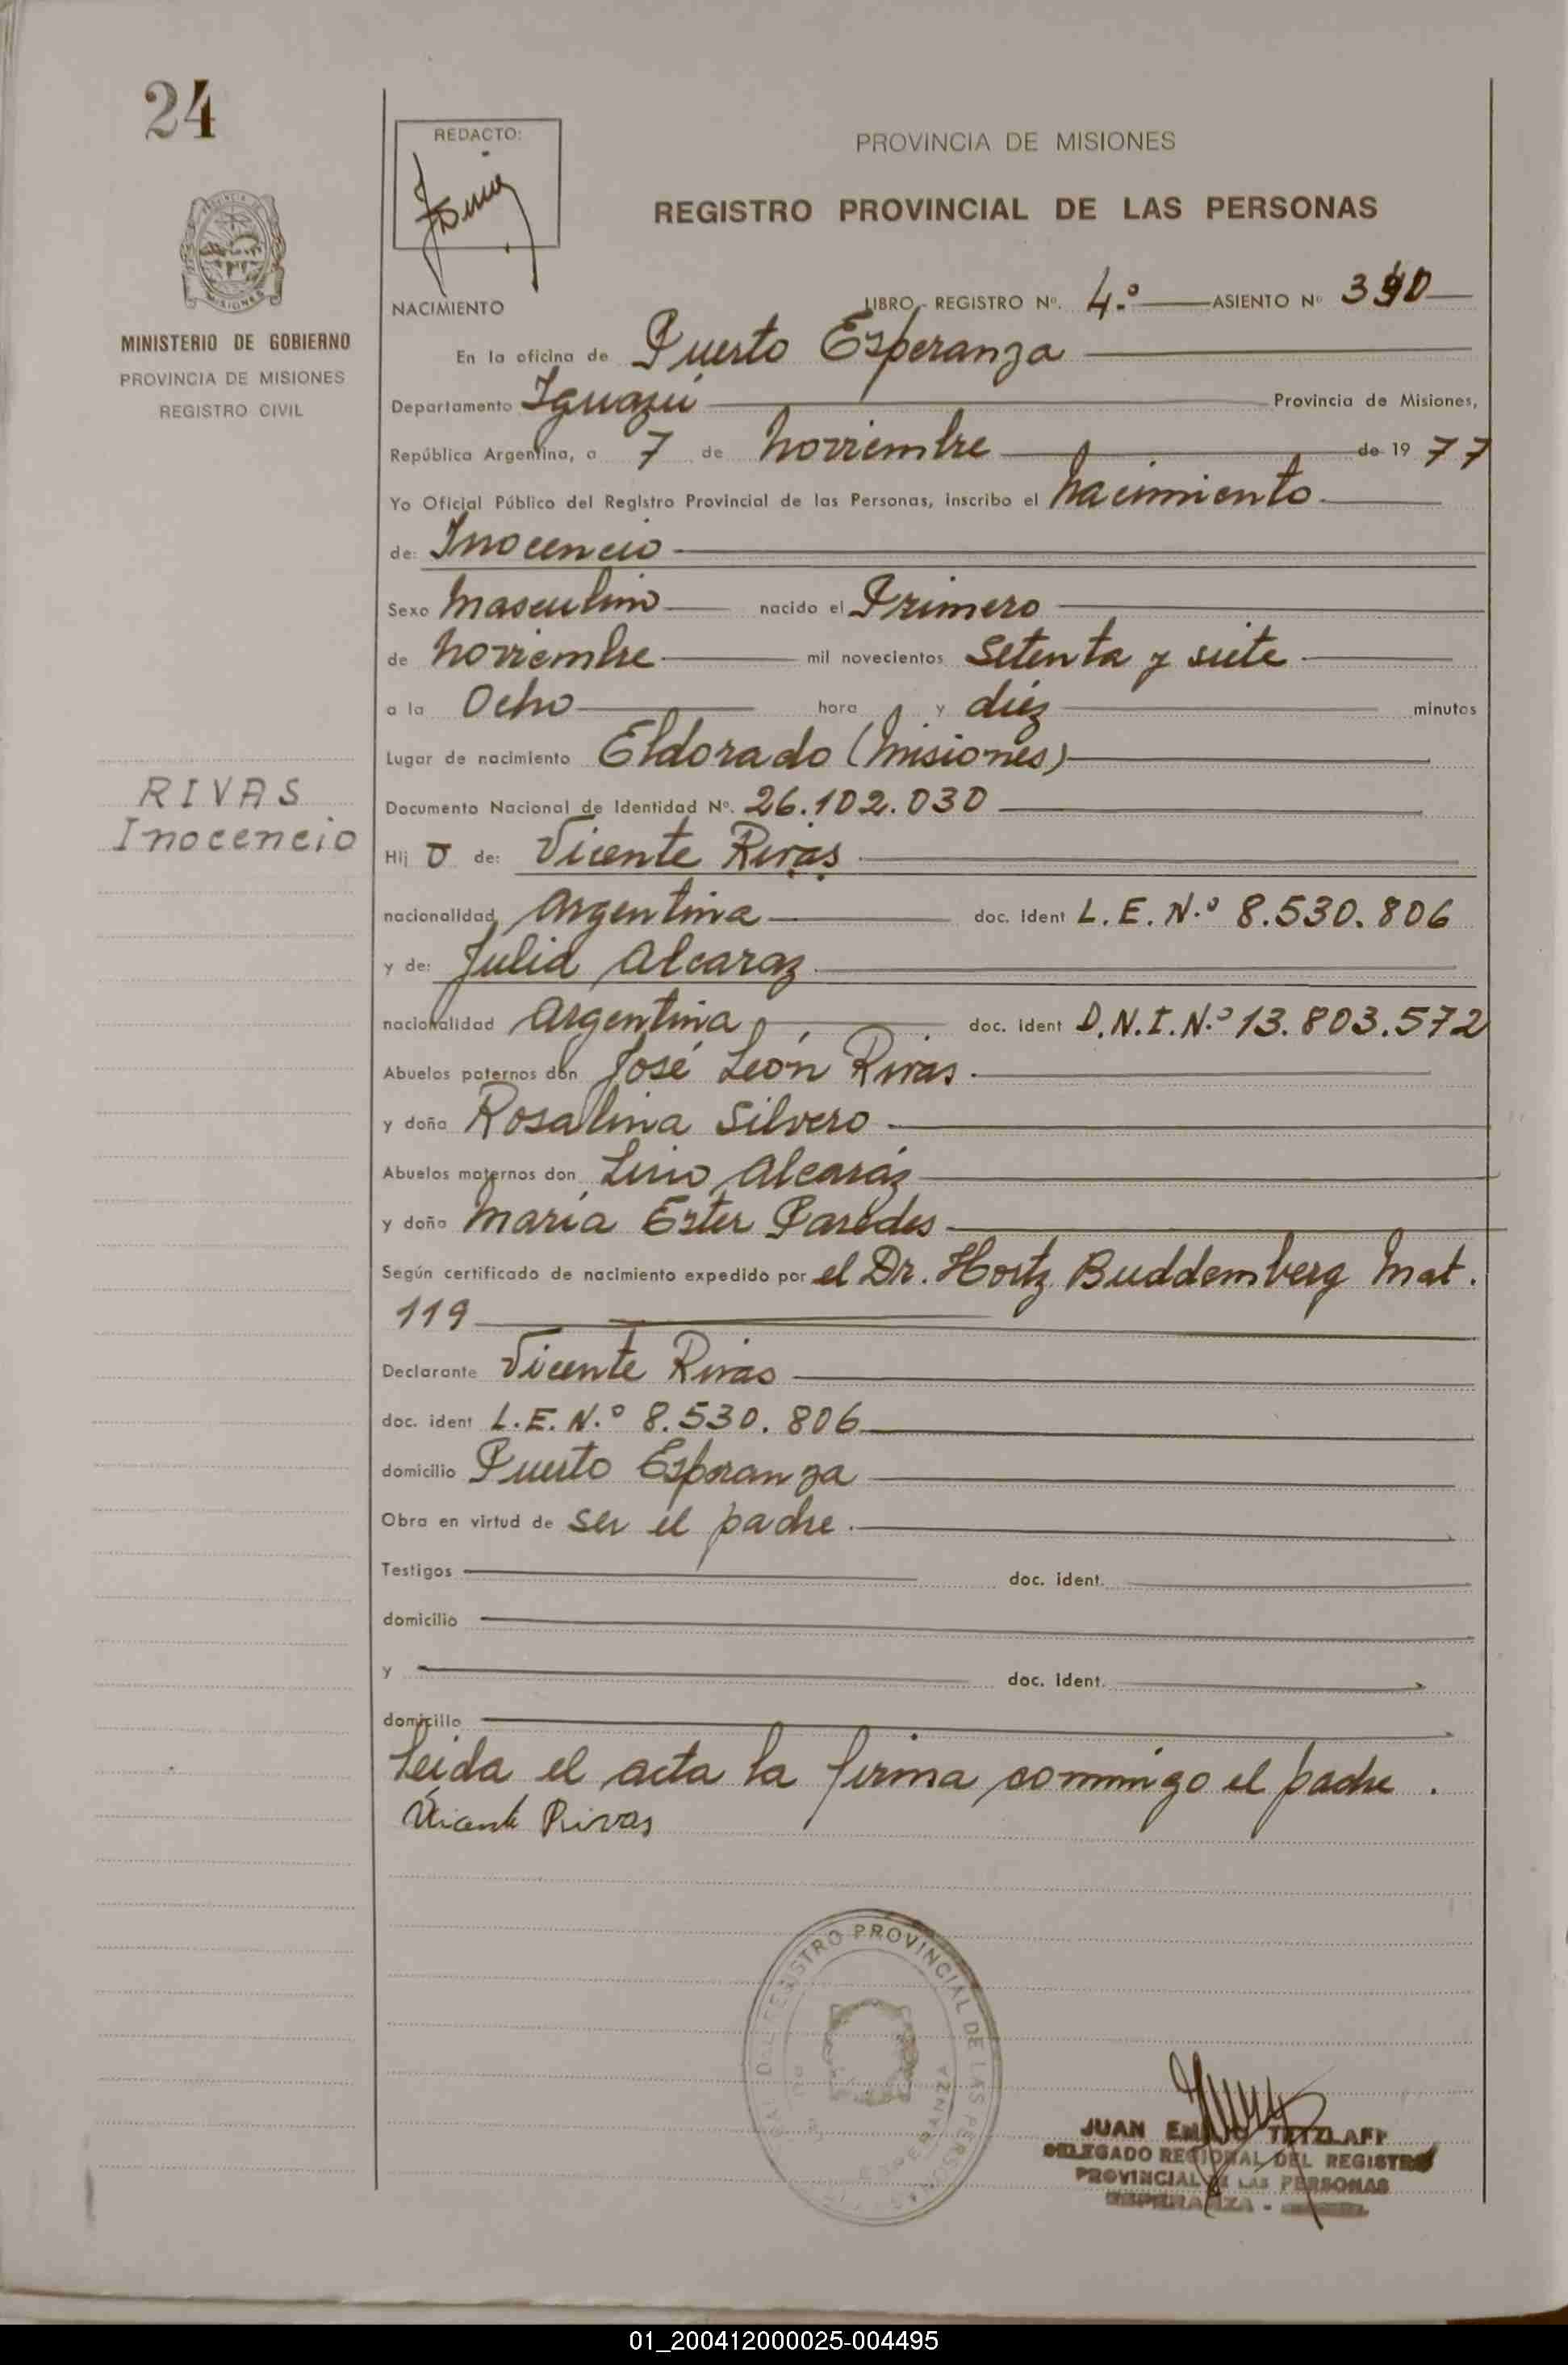 24
MINISTERIO DE GOBIERNO
PROVINCIA DE MISIONES
REGISTRO CIVIL
RIVAS
Inocencio
REDACTO:
PROVINCIA DE MISIONES
REGISTRO PROVINCIAL DE LAS PERSONAS
NACIMIENTO LIBRO - REGISTRO Nº. 4.º ASIENTO Nº 390
En la oficina de Puerto Esperanza
Departamento Iguazú Provincia de Misiones,
República Argentina, a 7 de Noviembre de 19 77
Yo Oficial Público del Registro Provincial de las Personas, inscribo el Nacimiento
de: Inocencio
Sexo Masculino nacido el Primero
de Noviembre mil novecientos Setenta y siete
a la Ocho hora y diéz minutos
Lugar de nacimiento Eldorado (Misiones)
Documento Nacional de Identidad Nº. 26.102.030
Hij o de: Vicente Rivas
nacionalidad Argentina doc. ident L.E.N.º 8.530.806
y de: Julia Alcaraz
nacionalidad Argentina doc. ident D.N.I.N.º 13.803.572
Abuelos paternos don José León Rivas
y doña Rosalina Silvero
Abuelos maternos don Lino Alcaráz
y doña María Ester Paredes
Según certificado de nacimiento expedido por el Dr. Hortz Buddemberg Mat.
119
Declarante Vicente Rivas
doc. ident L.E.N.º 8.530.806
domicilio Puerto Esperanza
Obra en virtud de ser el padre.
Testigos doc. ident.
domicilio
y doc. ident.
domicilio
Leída el acta la firma conmigo el padre.
Vicente Rivas
REGISTRO PROVINCIAL DE LAS PERSONAS
ESPERANZA
JUAN TETZLAFF
DELEGADO REGIONAL DEL REGISTRO
PROVINCIAL DE LAS PERSONAS
ESPERANZA -
01_200412000025-004495